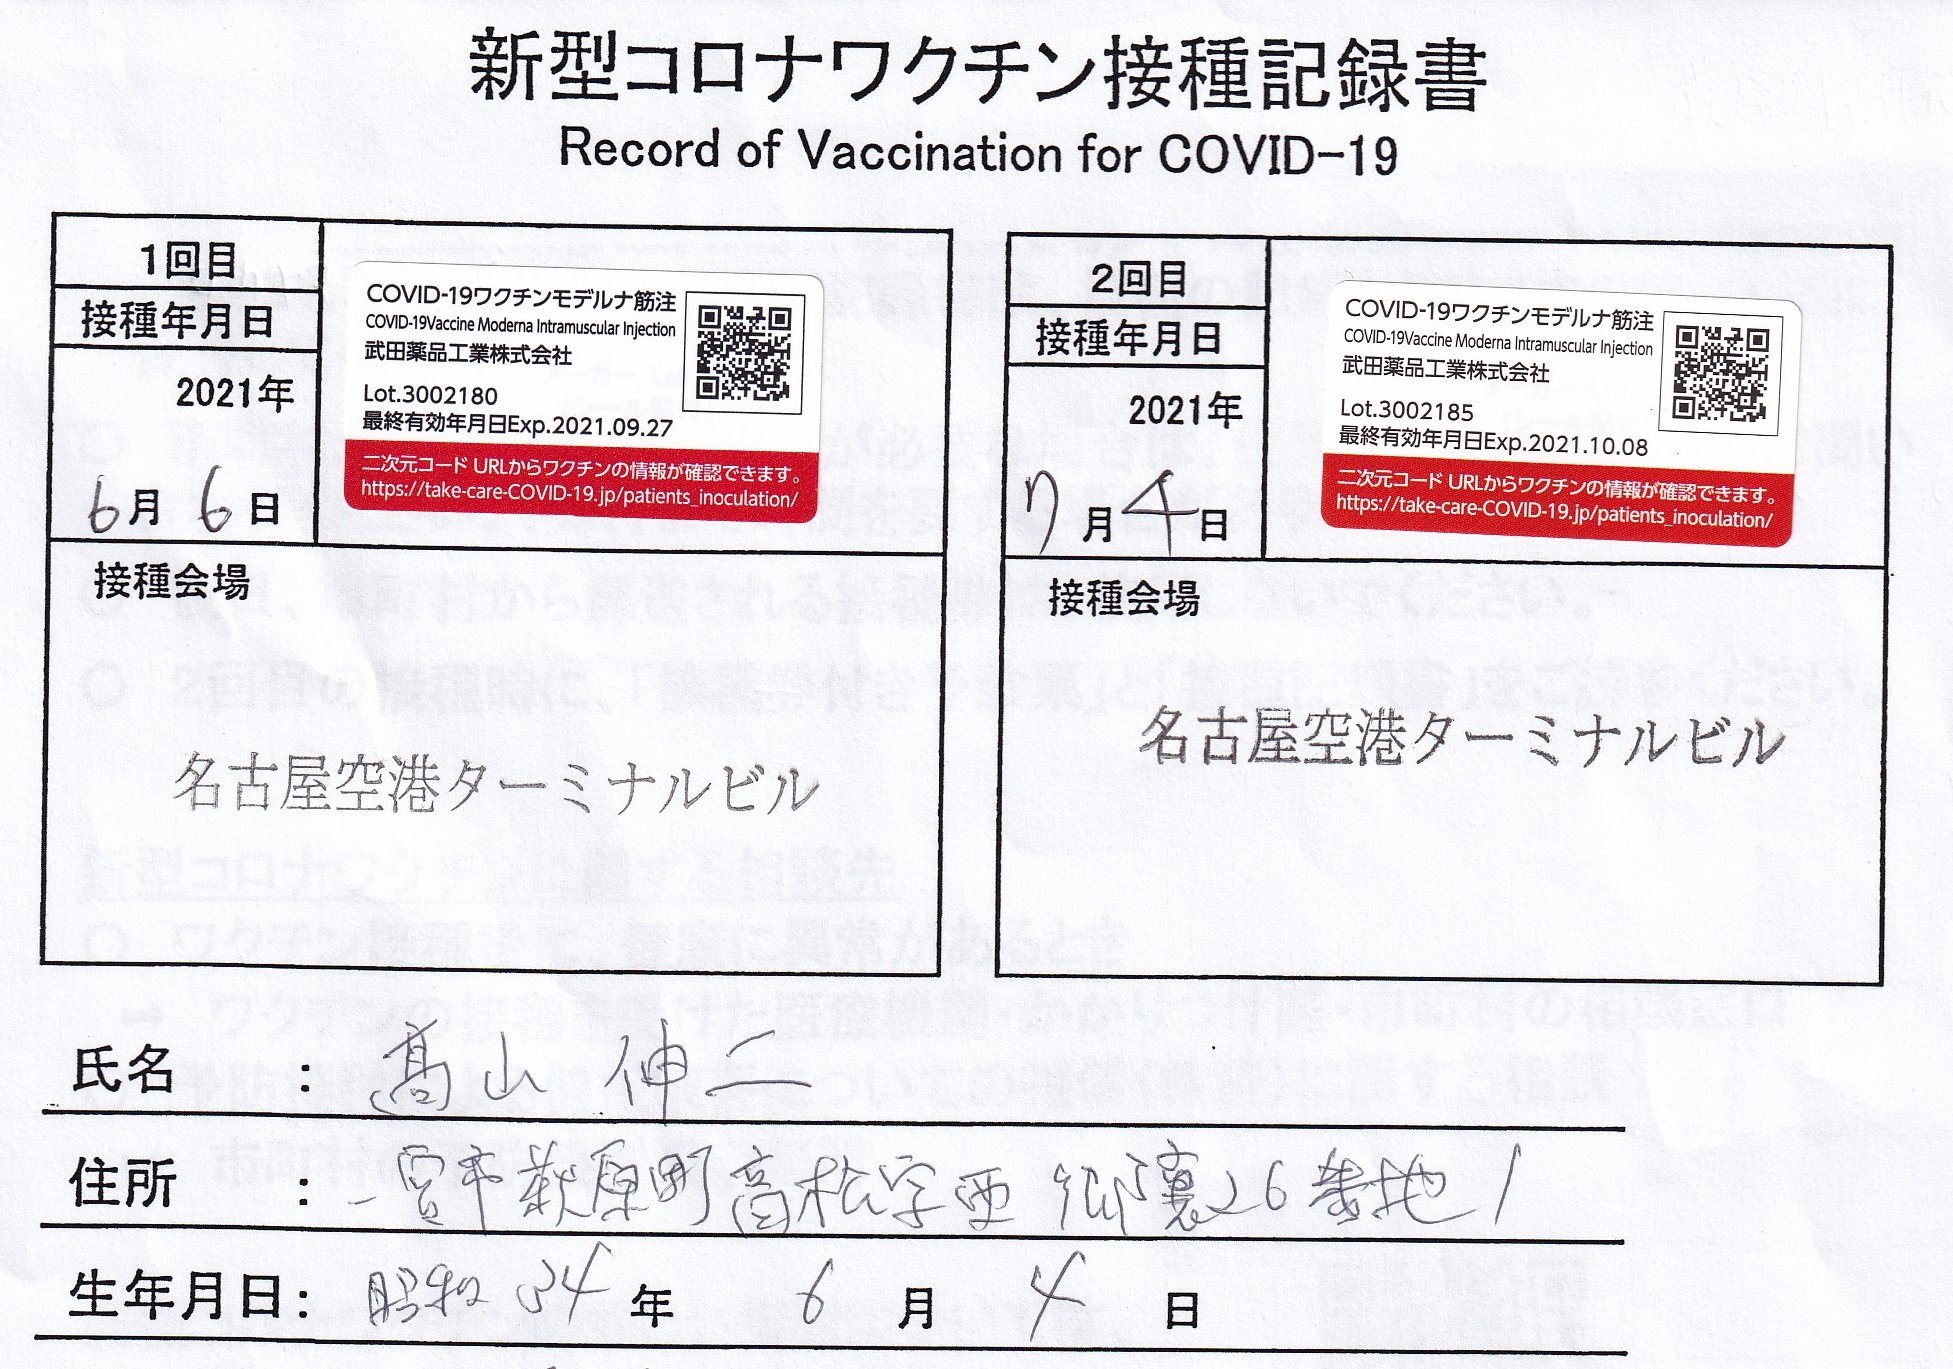 新型コロナワクチン接種記録書
Record of Vaccination for COVID-19
1回目
接種年月日
2021年
6月 6日
COVID-19ワクチンモデルナ筋注
COVID-19Vaccine Moderna Intramuscular Injection
武田薬品工業株式会社
Lot.3002180
最終有効年月日Exp.2021.09.27
二次元コード URLからワクチンの情報が確認できます。
https://take-care-COVID-19.jp/patients_inoculation/
接種会場
名古屋空港ターミナルビル
2回目
接種年月日
2021年
7月 4日
COVID-19ワクチンモデルナ筋注
COVID-19Vaccine Moderna Intramuscular Injection
武田薬品工業株式会社
Lot.3002185
最終有効年月日Exp.2021.10.08
二次元コード URLからワクチンの情報が確認できます。
https://take-care-COVID-19.jp/patients_inoculation/
接種会場
名古屋空港ターミナルビル
氏名 : 髙山 伸二
住所 : 一宮市萩原町高松字西郷裏26番地1
生年月日: 昭和34年 6月 4日